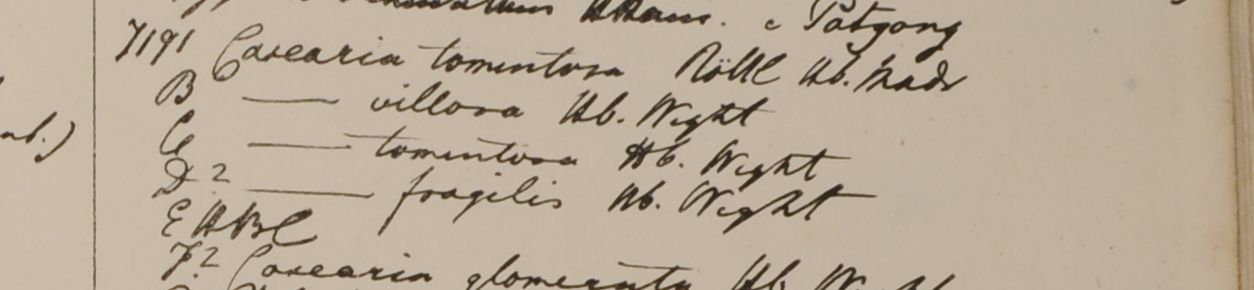 Ham. e Patgong
7191 Casearia tomentosa Röttl Hb. Madr
B —— villosa Hb. Wight
nb.)
C —— tomentosa Hb. Wight
D? —— fragilis Hb. Wight
E HBC
F? Casearia glomerata Hb. Wight